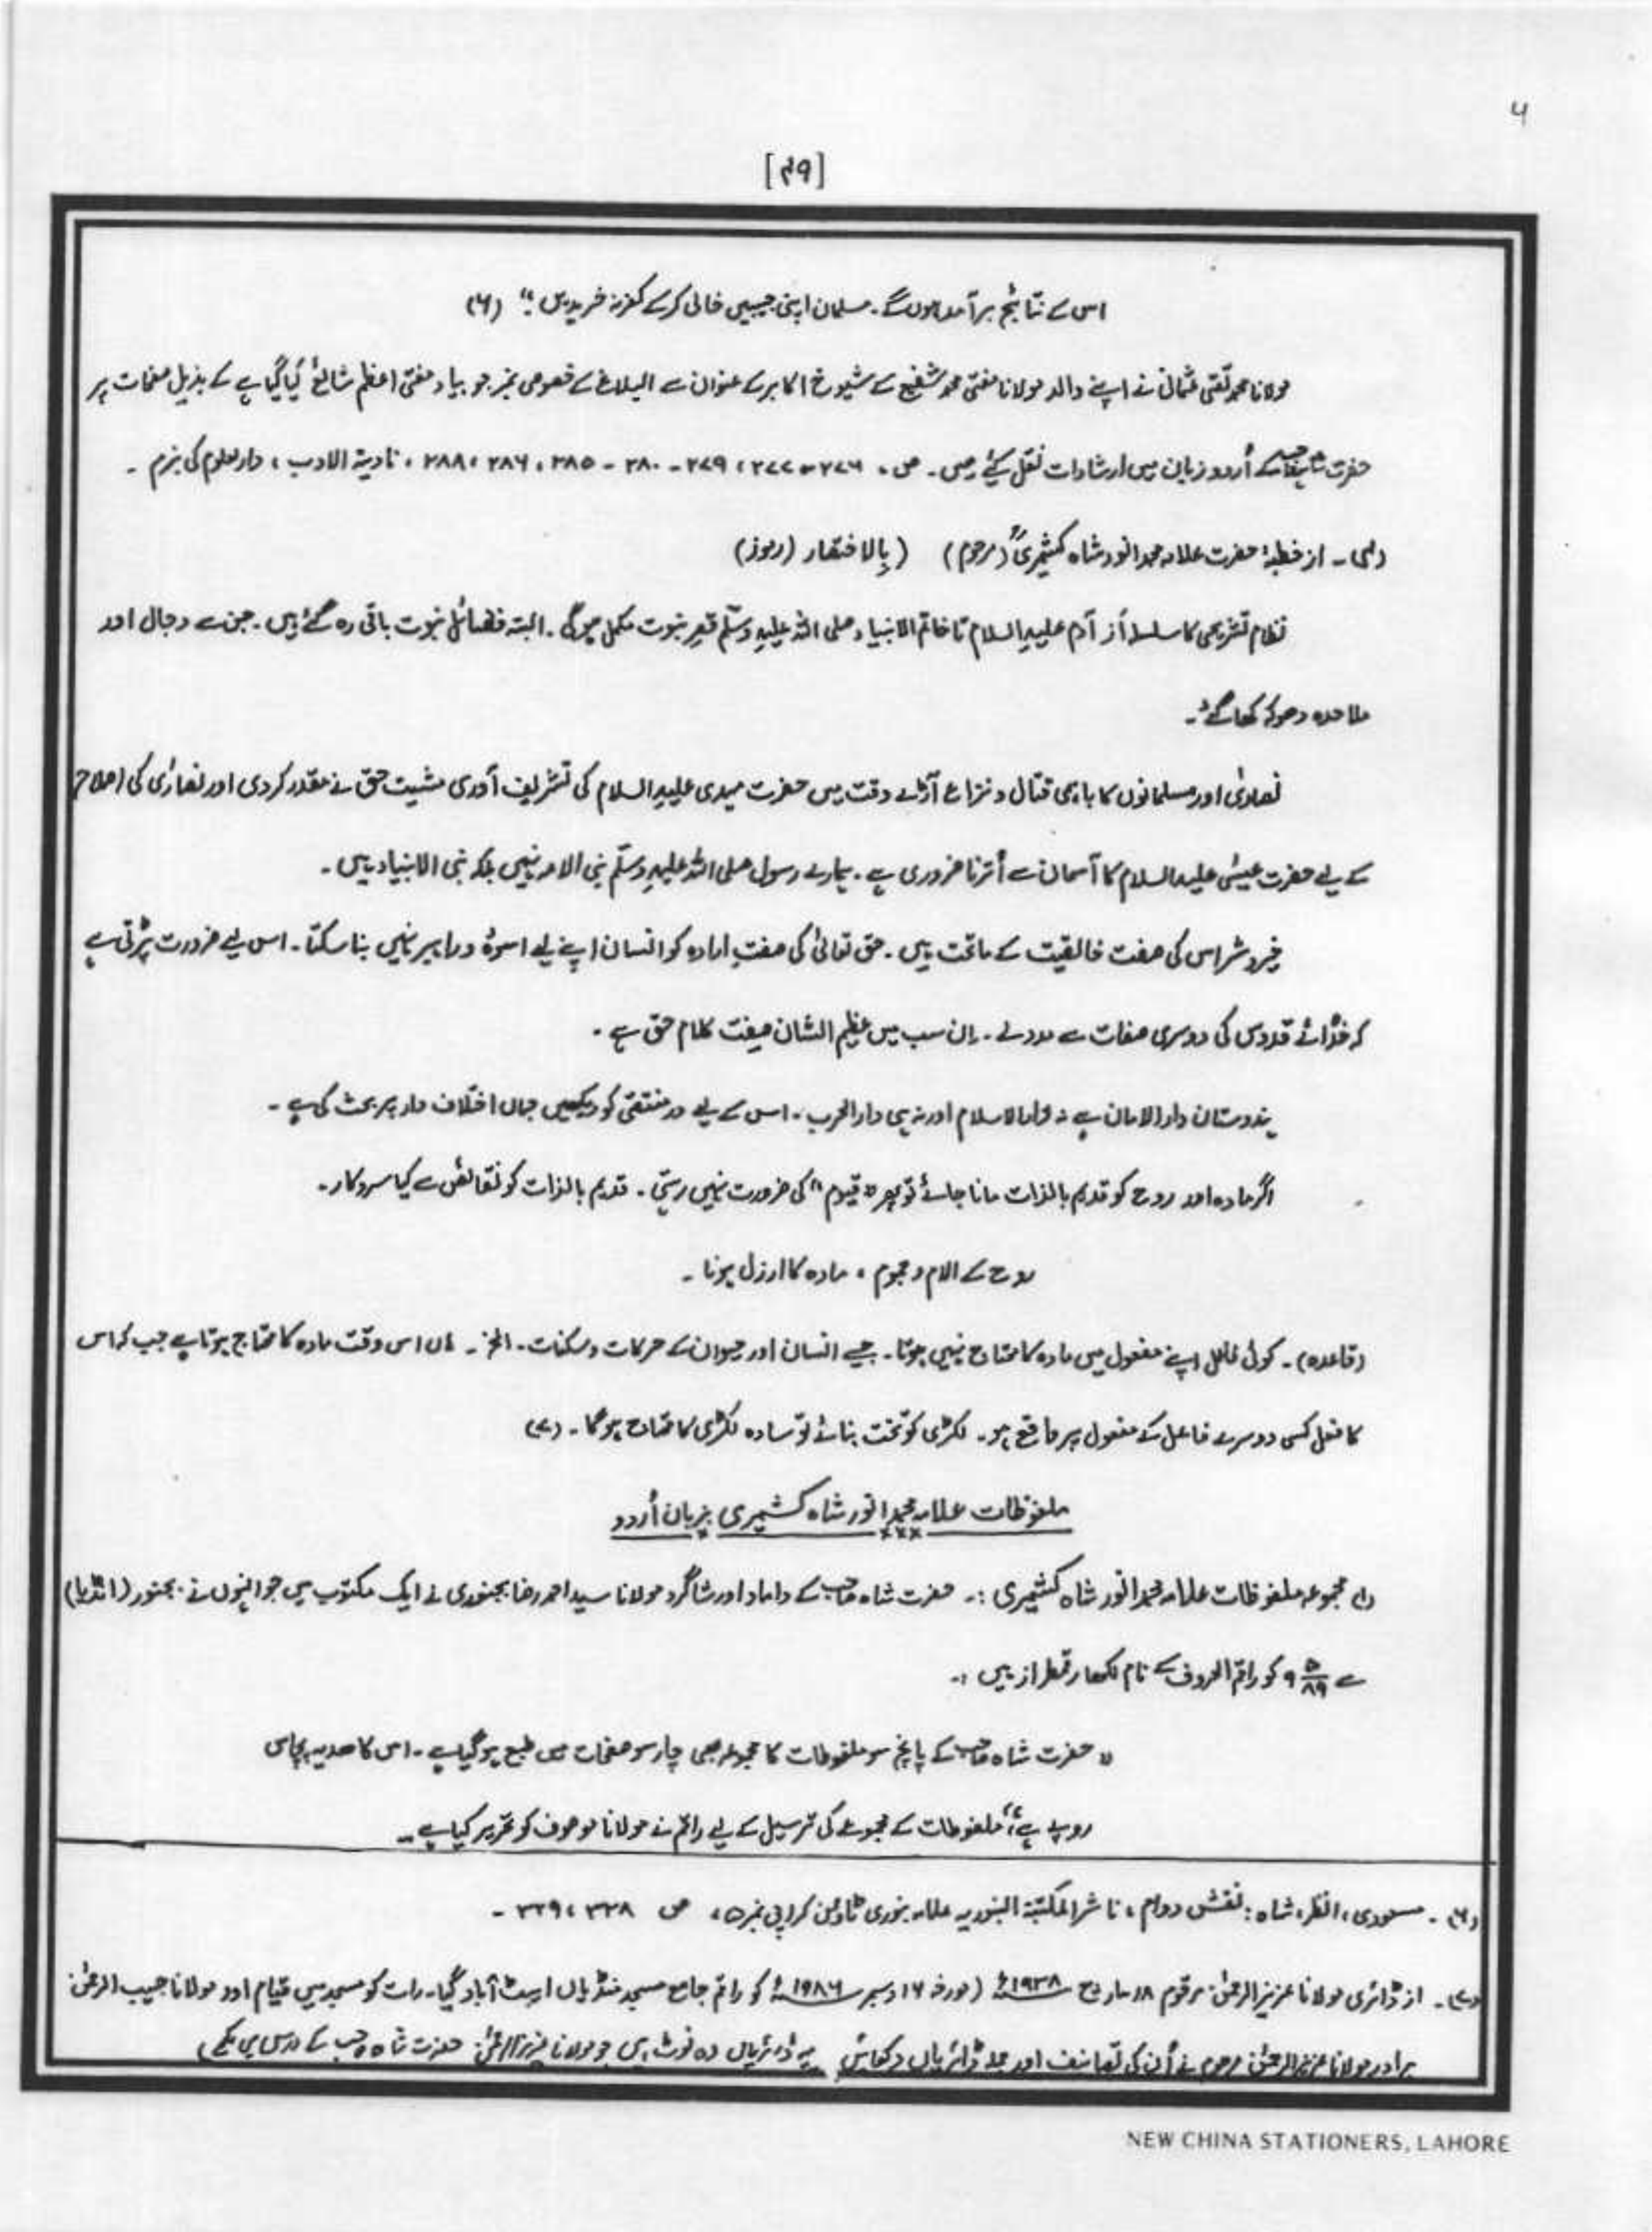 ۶
[۴۹]
اس کے نتائج برآمد ہوں گے۔ مسلمان اپنی جیبیں خالی کر کے کفر نہ خریدیں۔" (۶)
مولانا محمد تقی عثمانی نے اپنے والد مولانا مفتی محمد شفیع کے شیوخ اکابر کے عنوان سے البلاغ کے خصوصی نمبر جو بیاد مفتی اعظم شائع کیا گیا ہے کے بذیل صفحات پر
حضرت شاہ صاحب کے اُردو زبان میں ارشادات نقل کیے ہیں۔ ص۔ ۲۷۶ - ۲۷۷، ۲۷۹ - ۳۸۰ - ۳۸۵، ۳۸۶، ۳۸۸، نادیۃ الادب، دارالعلوم کی بزم۔
از خطبۂ حضرت علامہ محمد انور شاہ کشمیریؒ (مرحوم) (بالاختصار (رموز)
نظام تشریعی کا سلسلہ از آدم علیہ السلام تا خاتم الانبیاء صلی اللہ علیہ وسلّم قصرِ نبوت مکمل ہوگئی۔ البتہ فضائل نبوت باقی رہ گئے ہیں۔ جن سے دجال اور
ملاحدہ دھوکہ کھا گئے۔
نصاریٰ اور مسلمانوں کا باہمی قتال و نزاع آڑے وقت میں حضرت مہدی علیہ السلام کی تشریف آوری مشیت حق نے مقدر کر دی اور نصاریٰ کی اصلاح
کے لیے حضرت عیسٰی علیہ السلام کا آسمان سے اُترنا ضروری ہے۔ ہمارے رسول صلی اللہ علیہ وسلّم نبی الامہ نہیں بلکہ نبی الانبیاء ہیں۔
خیر و شر اس کی صفت خالقیت کے ماتحت ہیں۔ حق تعالیٰ کی صفتِ ارادہ کو انسان اپنے لیے اسوۂ و راہبر نہیں بنا سکتا۔ اس لیے ضرورت پڑتی ہے
کہ خدائے قدوس کی دوسری صفات سے مدد لے۔ اِن سب میں عظیم الشان صفت کلام حق ہے۔
ہندوستان دارالامان ہے نہ دارالاسلام اور نہ ہی دارالحرب۔ اس کے لیے در منتقیٰ کو دیکھیں جہاں اختلاف دار پر بحث کی ہے۔
اگر مادہ اور روح کو قدیم بالذات مانا جائے تو پھر "قیوم" کی ضرورت نہیں رہتی۔ قدیم بالذات کو نقائص سے کیا سروکار۔
روح کے الام و ہموم، مادہ کا ارذل ہونا۔
(قاعدہ)۔ کوئی فاعل اپنے مفعول میں مادہ کا محتاج نہیں ہوتا۔ جیسے انسان اور حیوان کے حرکات و سکنات۔ الخ۔ ہاں اس وقت مادہ کا محتاج ہوتا ہے جب کہ اس
کا فعل کسی دوسرے فاعل کے مفعول پر واقع ہو۔ لکڑی کو تخت بنائے تو سادہ لکڑی کا محتاج ہوگا۔ (۷)
ملفوظات علامہ محمد انور شاہ کشمیری بزبان اُردو
(۱) مجموعہ ملفوظات علامہ محمد انور شاہ کشمیری :۔ حضرت شاہ صاحب کے داماد اور شاگرد مولانا سید احمد رضا بجنوری نے ایک مکتوب میں جو انہوں نے بجنور (انڈیا)
سے ۹ ۵/۸۹ کو راقم الحروف کے نام لکھا رقمطراز ہیں :۔
"حضرت شاہ صاحب کے پانچ سو ملفوظات کا مجموعہ بھی چار سو صفحات میں طبع ہو گیا ہے۔ اس کا ھدیہ پچاس
روپیہ ہے" ملفوظات کے مجموعے کی ترسیل کے لیے راقم نے مولانا موصوف کو تحریر کیا ہے۔
(۶)۔ مسعودی، انظر، شاہ : نقش دوام، ناشر المکتبۃ البنوریہ علامہ بنوری ٹاؤن کراچی نمبر ۵، ص ۳۳۸، ۳۳۹۔
(۷)۔ از ڈائری مولانا عزیز الرحمٰن مرقوم ۱۸ مارچ ۱۹۳۸ء (مورخہ ۱۷ دسمبر ۱۹۸۶ء کو راقم جامع مسجد منڈیاں ایبٹ آباد گیا۔ رات کو مسجد میں قیام اور مولانا حبیب الرحمٰن
برادر مولانا عزیز الرحمٰن مرحوم نے اُن کی تصانیف اور جملہ ڈائریاں دکھائیں یہ ڈائریاں وہ نوٹ ہیں جو مولانا عزیز الرحمٰن حضرت شاہ صاحب کے درس میں لکھے)
NEW CHINA STATIONERS, LAHORE